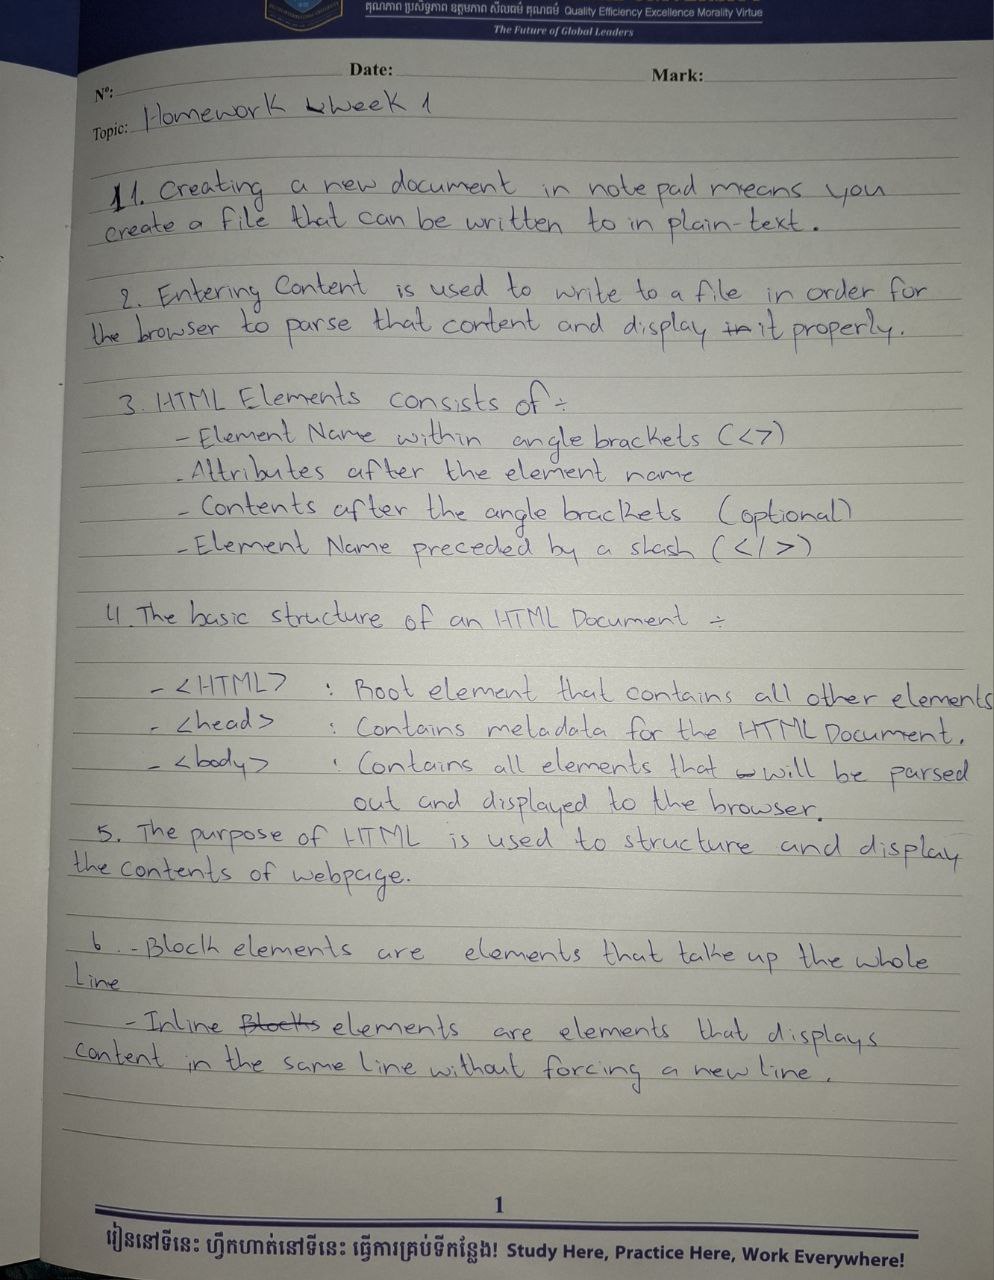 គុណភាព ប្រសិទ្ធភាព ឧត្តមភាព សីលធម៌ គុណធម៌ Quality Efficiency Excellence Morality Virtue
The Future of Global Leaders
Nº:
Date:
Mark:
Topic: Homework Week 1
1. Creating a new document in note pad means you
create a file that can be written to in plain-text.
2. Entering Content is used to write to a file in order for
the browser to parse that content and display it properly.
3. HTML Elements consists of ÷
- Element Name within angle brackets (<>)
- Attributes after the element name
- Contents after the angle brackets (optional)
- Element Name preceded by a slash (</>)
4. The basic structure of an HTML Document ÷
- <HTML> : Root element that contains all other elements
- <head> : Contains metadata for the HTML Document.
- <body> : Contains all elements that will be parsed
out and displayed to the browser.
5. The purpose of HTML is used to structure and display
the contents of webpage.
6. - Block elements are elements that take up the whole
line
- Inline Blocks elements are elements that displays
content in the same line without forcing a new line.
1
រៀននៅទីនេះ ហ្វឹកហាត់នៅទីនេះ ធ្វើការគ្រប់ទីកន្លែង! Study Here, Practice Here, Work Everywhere!